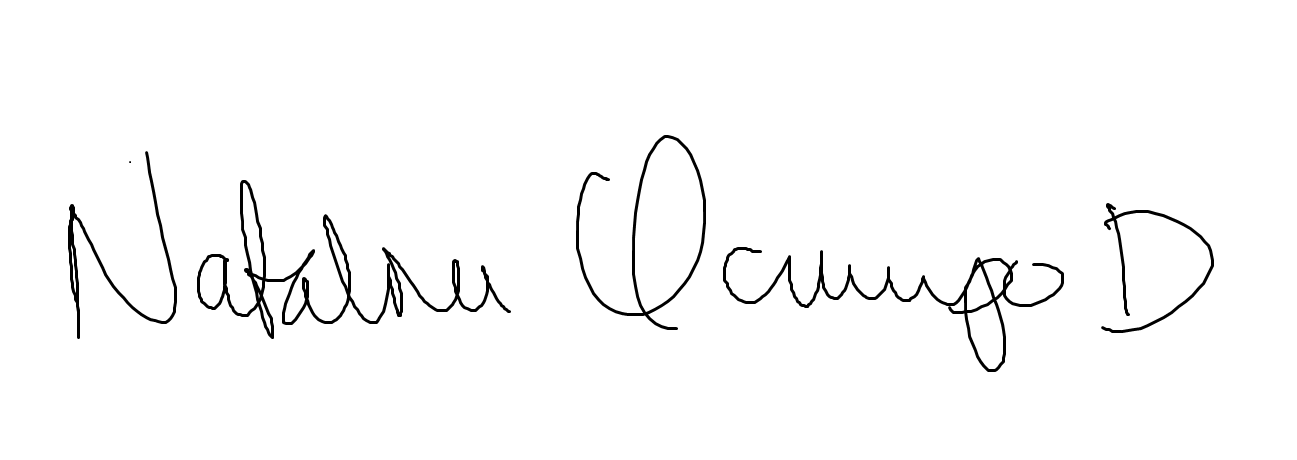 Natalia Ocampo D